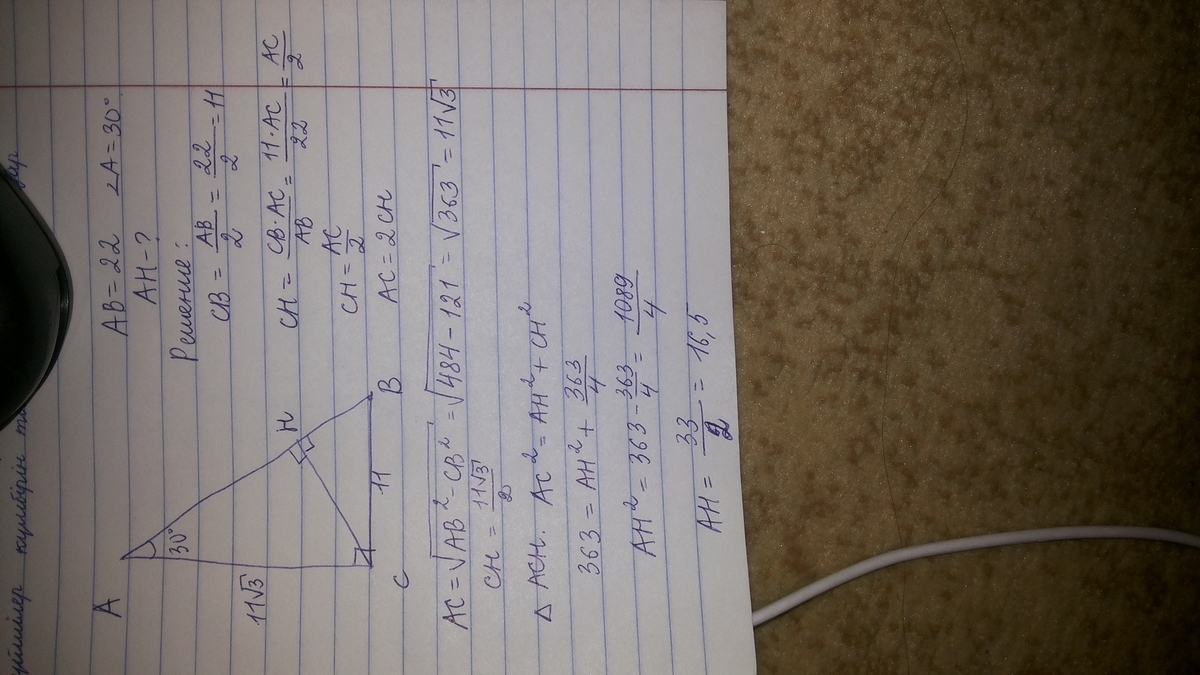 AB = 22 ∠A = 30°
AH - ?
Решение:
CB = AB/2 = 22/2 = 11
CH = CB·AC/AB = 11·AC/22 = AC/2
CH = AC/2
AC = 2CH
A
30°
11√3
H
11
C
B
AC = √(AB² - CB²) = √(484 - 121) = √363 = 11√3
CH = 11√3/2
△ ACH. AC² = AH² + CH²
363 = AH² + 363/4
AH² = 363 - 363/4 = 1089/4
AH = 33/2 = 16,5